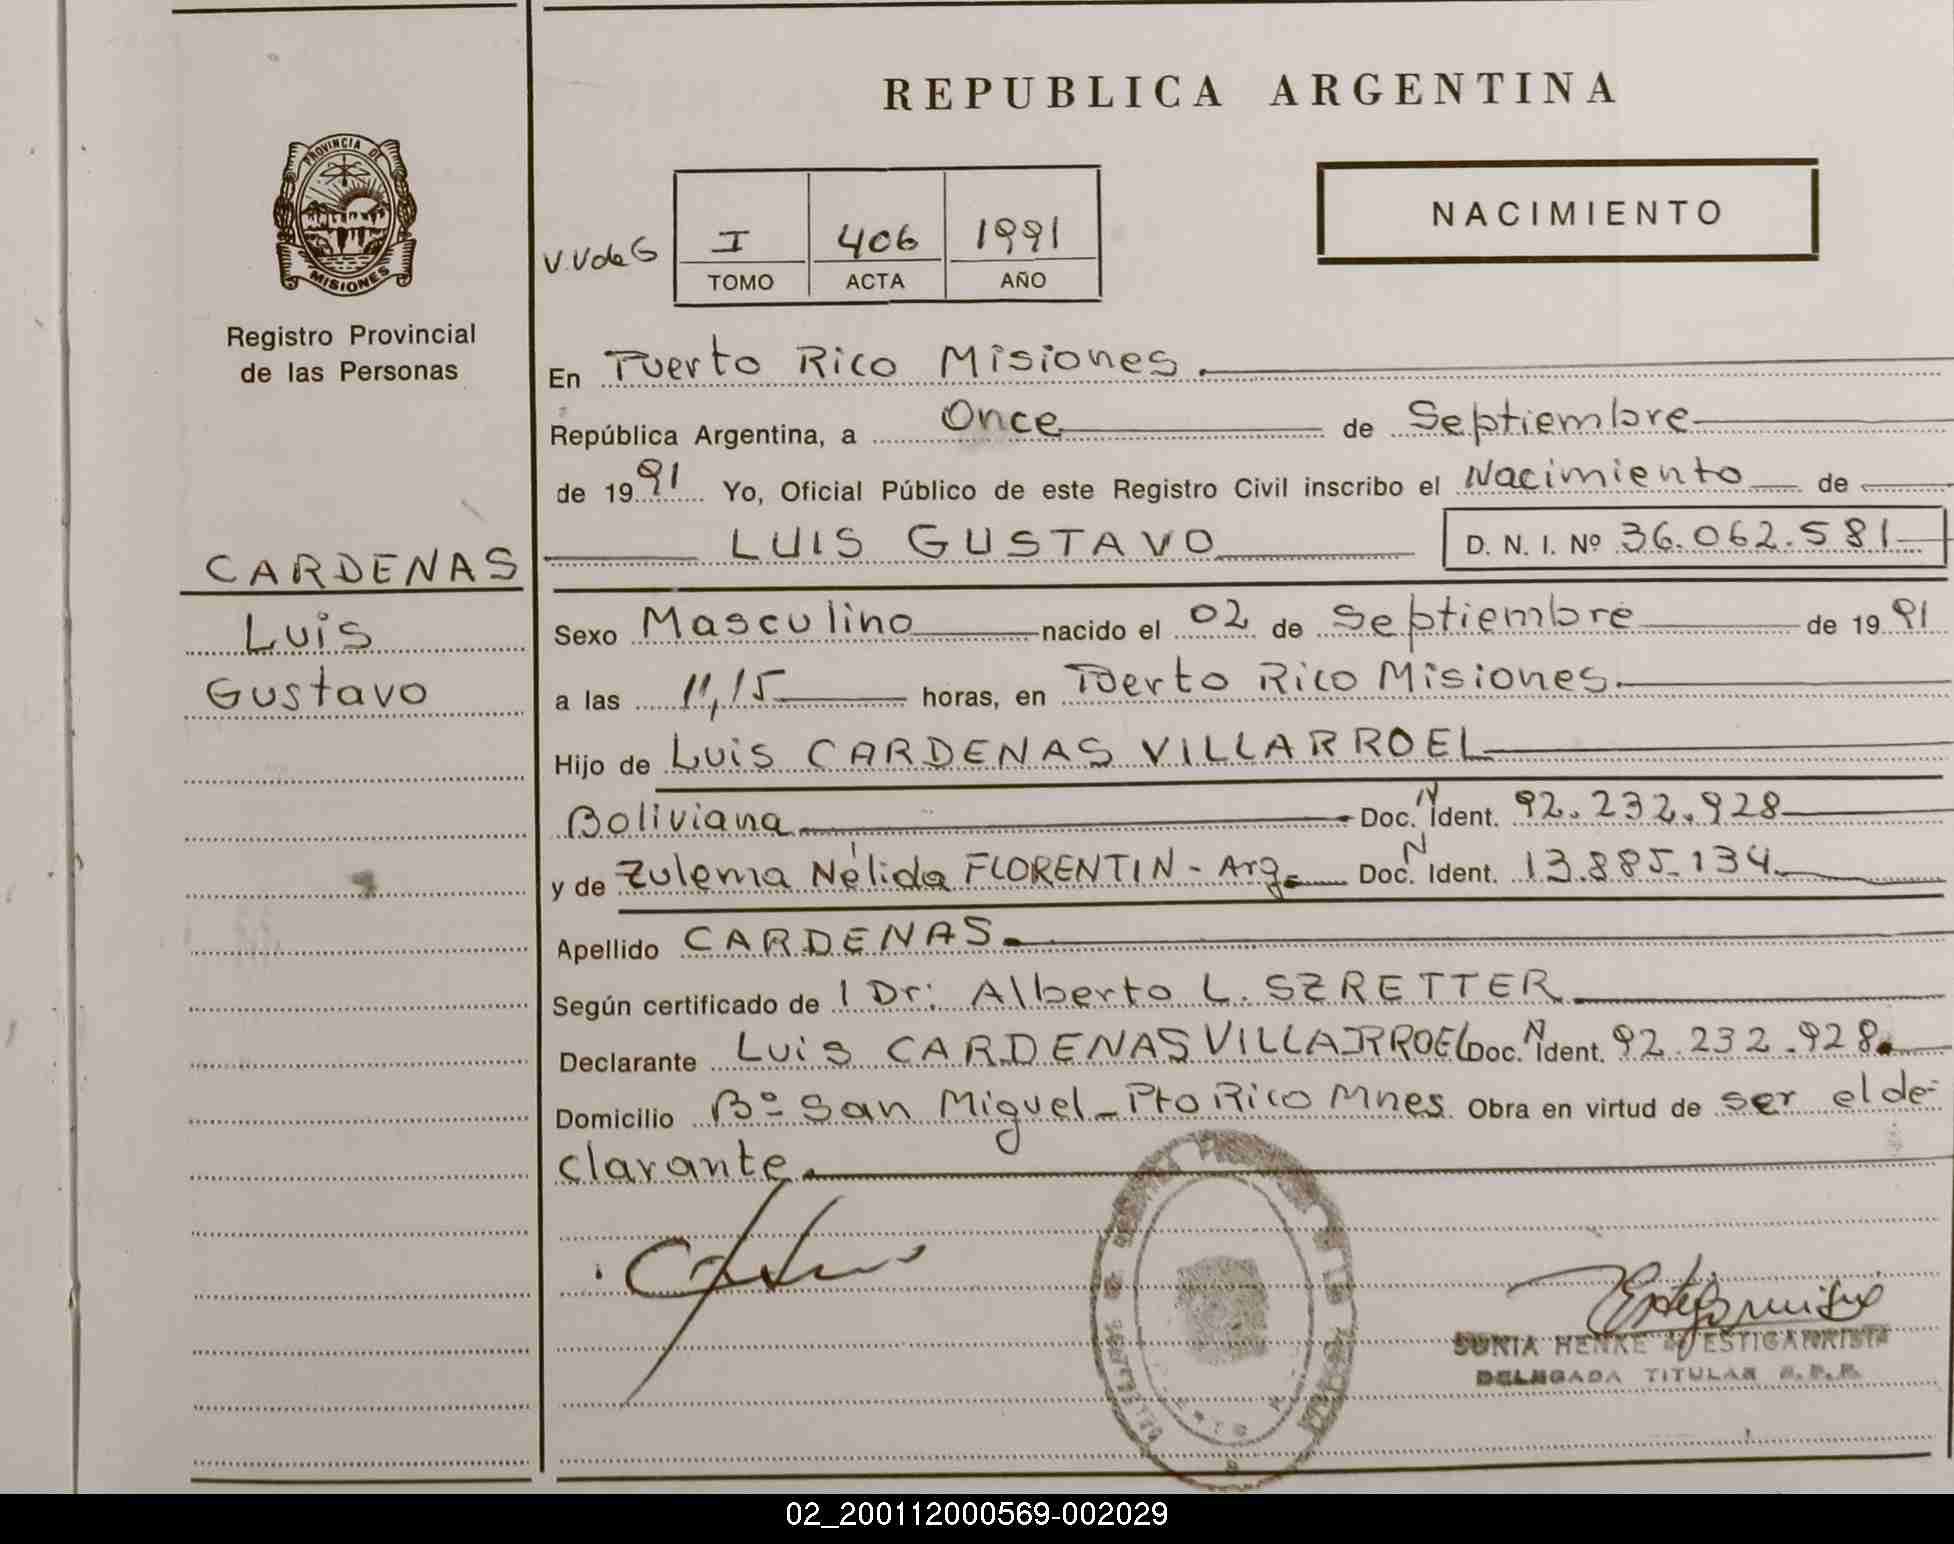 REPUBLICA ARGENTINA
PROVINCIA DE
MISIONES
Registro Provincial
de las Personas
NACIMIENTO
V.V de G
I 406 1991
TOMO ACTA AÑO
En Puerto Rico Misiones.
República Argentina, a Once de Septiembre
de 1991 Yo, Oficial Público de este Registro Civil inscribo el Nacimiento de
LUIS GUSTAVO D. N. I. Nº 36.062.581
CARDENAS
Luis
Gustavo
Sexo Masculino nacido el 02 de Septiembre de 1991
a las 11,15 horas, en Puerto Rico Misiones.
Hijo de Luis CARDENAS VILLARROEL
Boliviana Doc. N Ident. 92.232.928
y de Zulema Nélida FLORENTIN - Arg. Doc. N Ident. 13.885.134
Apellido CARDENAS.
Según certificado de l Dr: Alberto L. SZRETTER
Declarante Luis CARDENAS VILLARROEL Doc. N Ident. 92.232.928.
Domicilio Bº San Miguel - Pto Rico Mnes. Obra en virtud de ser el de-
clarante.
HENKE
DELEGADA TITULAR R.P.P.
02_200112000569-002029